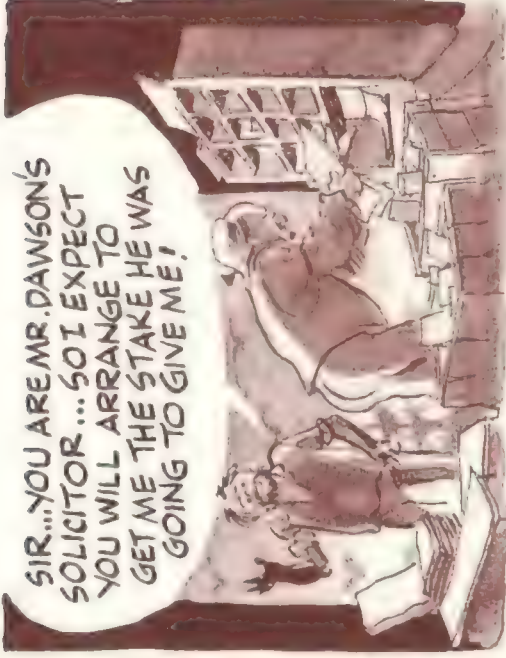 SIR...YOU ARE MR. DAWSON'S
SOLICITOR... SO I EXPECT
YOU WILL ARRANGE TO
GET ME THE STAKE HE WAS
GOING TO GIVE ME!